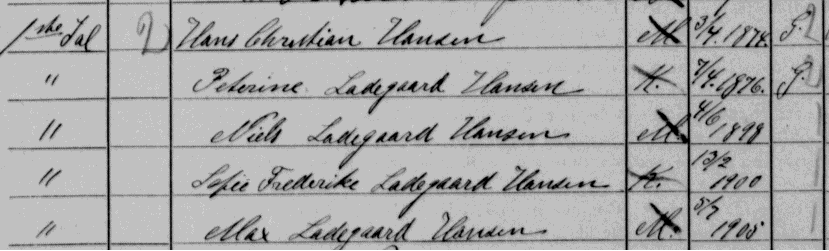 1ste Sal 2) Hans Christian Hansen M. 3/7. 1874. G.
" Peterine Ladegaard Hansen K. 7/4. 1876. G.
" Niels Ladegaard Hansen M. 4/6 1898
" Sofie Frederike Ladegaard Hansen K. 13/2 1900
" Max Ladegaard Hansen M. 5/7 1905